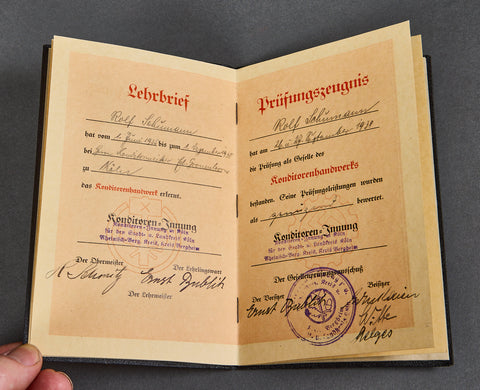 Lehrbrief
Rolf Schumann
hat vom 1. Juni 19 bis zum 1. Dezember 19
bei dem Konditormeister
zu Köln
das Konditorenhandwerk erlernt.
Konditoren-Innung
Konditoren-Innung v. Köln
für den Stadt- u. Landkreis Köln
Rheinisch-Berg. Kreis, Kreis Bergheim
Der Obermeister
Der Lehrlingswart
Schmitz
Ernst Dreblik
Der Lehrmeister
Prüfungszeugnis
Rolf Schumann
hat am 26 u 27 September 19
die Prüfung als Geselle des
Konditorenhandwerks
bestanden. Seine Prüfungsleistungen wurden
als genügend bewertet.
Konditoren-Innung
Konditoren-Innung v. Köln
für den Stadt- u. Landkreis Köln
Rheinisch-Berg. Kreis, Kreis Bergheim
Der Gesellenprüfungsausschuß
Der Vorsitzer
Beisitzer
Ernst Dreblik